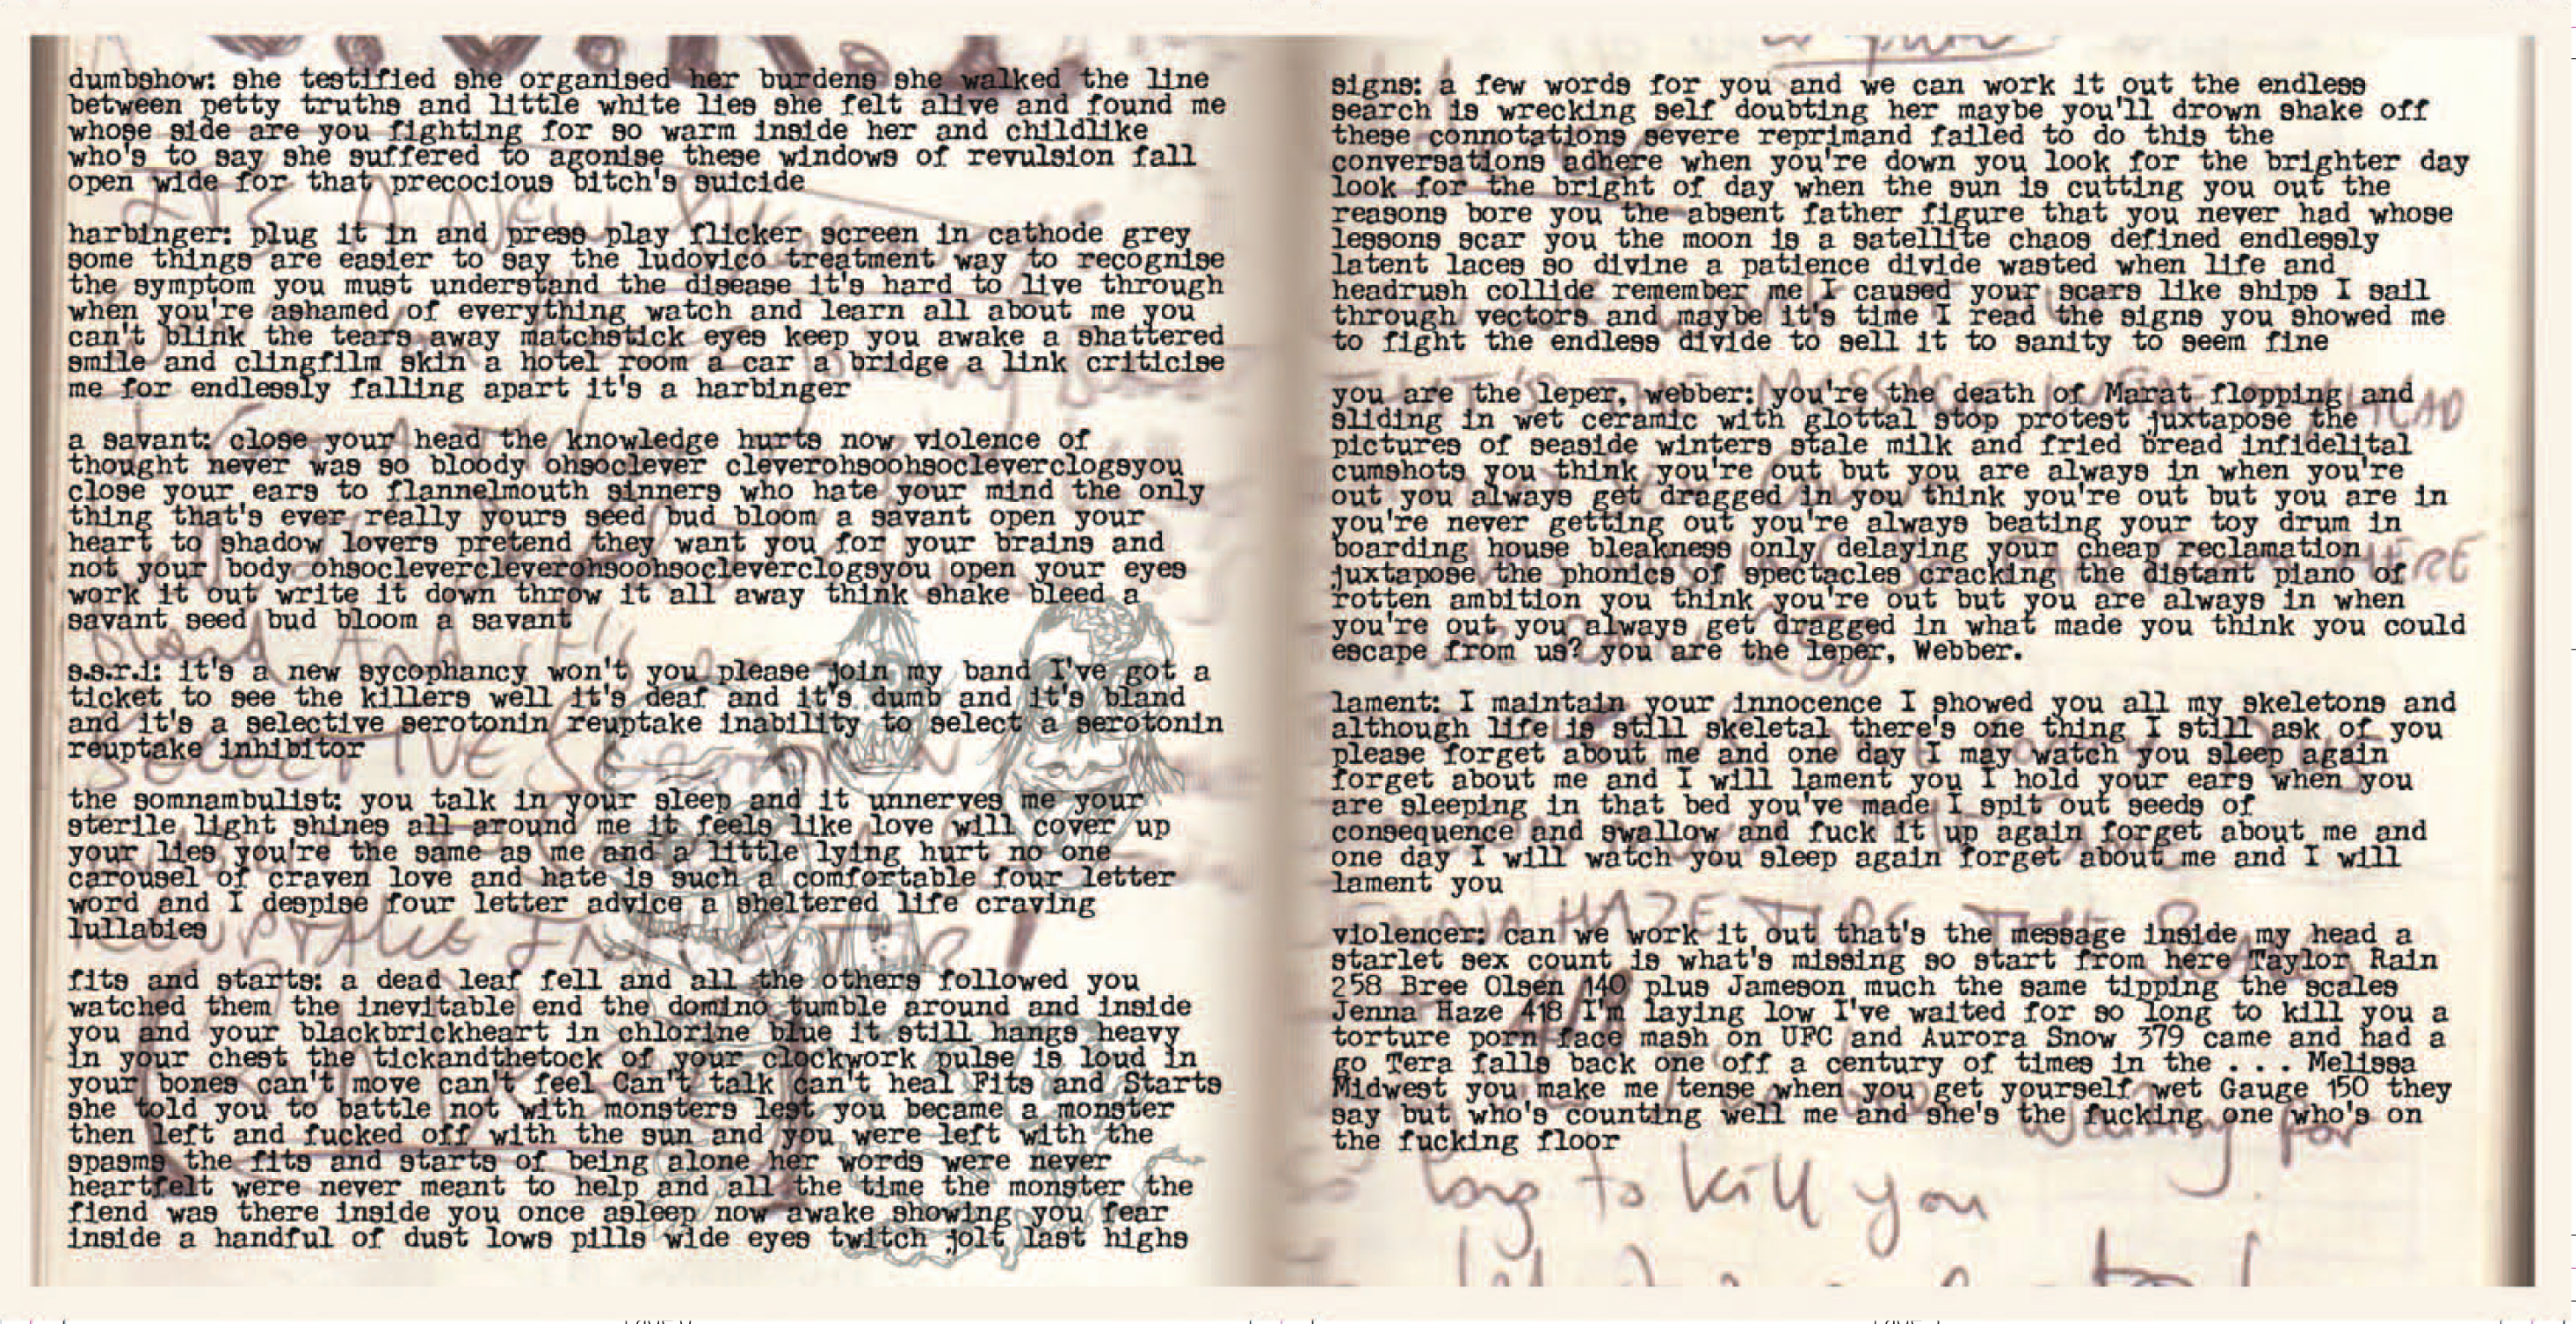 dumbshow: she testified she organised her burdens she walked the line
between petty truths and little white lies she felt alive and found me
whose side are you fighting for so warm inside her and childlike
who's to say she suffered to agonise these windows of revulsion fall
open wide for that precocious bitch's suicide
harbinger: plug it in and press play flicker screen in cathode grey
some things are easier to say the ludovico treatment way to recognise
the symptom you must understand the disease it's hard to live through
when you're ashamed of everything watch and learn all about me you
can't blink the tears away matchstick eyes keep you awake a shattered
smile and clingfilm skin a hotel room a car a bridge a link criticise
me for endlessly falling apart it's a harbinger
a savant: close your head the knowledge hurts now violence of
thought never was so bloody ohsoclever cleverohsoohsocleverclogsyou
close your ears to flannelmouth sinners who hate your mind the only
thing that's ever really yours seed bud bloom a savant open your
heart to shadow lovers pretend they want you for your brains and
not your body ohsoclevercleverohsoohsocleverclogsyou open your eyes
work it out write it down throw it all away think shake bleed a
savant seed bud bloom a savant
s.s.r.i: it's a new sycophancy won't you please join my band I've got a
ticket to see the killers well it's deaf and it's dumb and it's bland
and it's a selective serotonin reuptake inability to select a serotonin
reuptake inhibitor
the somnambulist: you talk in your sleep and it unnerves me your
sterile light shines all around me it feels like love will cover up
your lies you're the same as me and a little lying hurt no one
carousel of craven love and hate is such a comfortable four letter
word and I despise four letter advice a sheltered life craving
lullabies
fits and starts: a dead leaf fell and all the others followed you
watched them the inevitable end the domino tumble around and inside
you and your blackbrickheart in chlorine blue it still hangs heavy
in your chest the tickandthetock of your clockwork pulse is loud in
your bones can't move can't feel Can't talk can't heal Fits and Starts
she told you to battle not with monsters lest you became a monster
then left and fucked off with the sun and you were left with the
spasms the fits and starts of being alone her words were never
heartfelt were never meant to help and all the time the monster the
fiend was there inside you once asleep now awake showing you fear
inside a handful of dust lows pills wide eyes twitch jolt last highs
signs: a few words for you and we can work it out the endless
search is wrecking self doubting her maybe you'll drown shake off
these connotations severe reprimand failed to do this the
conversations adhere when you're down you look for the brighter day
look for the bright of day when the sun is cutting you out the
reasons bore you the absent father figure that you never had whose
lessons scar you the moon is a satellite chaos defined endlessly
latent laces so divine a patience divide wasted when life and
headrush collide remember me I caused your scars like ships I sail
through vectors and maybe it's time I read the signs you showed me
to fight the endless divide to sell it to sanity to seem fine
you are the leper, webber: you're the death of Marat flopping and
sliding in wet ceramic with glottal stop protest juxtapose the
pictures of seaside winters stale milk and fried bread infidelital
cumshots you think you're out but you are always in when you're
out you always get dragged in you think you're out but you are in
you're never getting out you're always beating your toy drum in
boarding house bleakness only delaying your cheap reclamation
juxtapose the phonics of spectacles cracking the distant piano of
rotten ambition you think you're out but you are always in when
you're out you always get dragged in what made you think you could
escape from us? you are the leper, Webber.
lament: I maintain your innocence I showed you all my skeletons and
although life is still skeletal there's one thing I still ask of you
please forget about me and one day I may watch you sleep again
forget about me and I will lament you I hold your ears when you
are sleeping in that bed you've made I spit out seeds of
consequence and swallow and fuck it up again forget about me and
one day I will watch you sleep again forget about me and I will
lament you
violencer: can we work it out that's the message inside my head a
starlet sex count is what's missing so start from here Taylor Rain
258 Bree Olsen 140 plus Jameson much the same tipping the scales
Jenna Haze 418 I'm laying low I've waited for so long to kill you a
torture porn face mash on UFC and Aurora Snow 379 came and had a
go Tera falls back one off a century of times in the ... Melissa
Midwest you make me tense when you get yourself wet Gauge 150 they
say but who's counting well me and she's the fucking one who's on
the fucking floor
waiting for
long to kill you